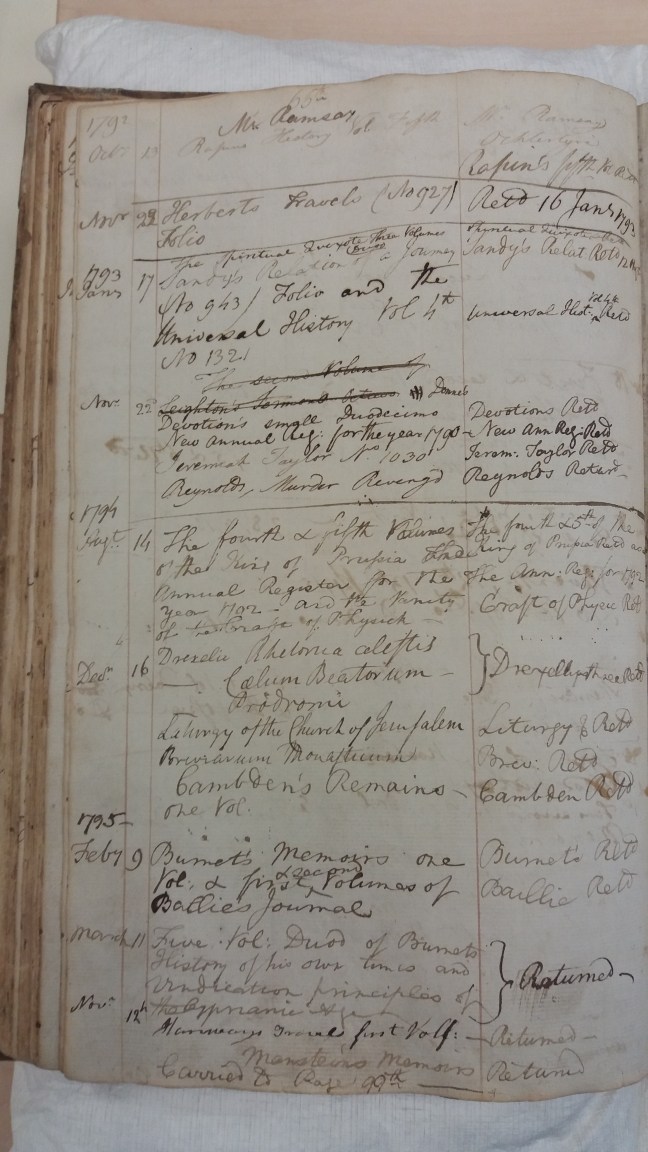 66
1792 Mr. Ramsay Mr. Ramsay
Octr 13 Rapins History Vol fifth Ochtertyre
Rapin's fifth Vol Retd
Novr 22 Herberts Travels (No 927) Retd 16 Janr 1793
Folio
The Spiritual Quixote three Volumes Spiritual Quixote Retd
1793 Sandy's Relation of a Journey Sandy's Relat Retd 12
Janry 17 (No 943) Folio and the
Universal History Vol 4th Universal Hist: Vol 4th Retd
No 132
The second Volume of
Novr 22d Leighton's Sermons
Devotions small Duodecimo Devotions Retd
New Annual Reg: for the year 1790 - New Ann Reg: Retd
Jeremiah Taylor No 1030 Jerem: Taylor Retd
Reynolds, Murder Reveng'd Reynolds Retur-
1794
Augt 14 The fourth & fifth Volumes The fourth & 5th of the
of the King of Prussia the King of Prussia Retd
Annual Register for the The Ann: Reg: for 1792
year 1792 - and the Vanity Craft of Physic Retd
of the Craft of Physick -
Decr 16 Drexelii Rhetorica cælestis
— Cælum Beatorum - Drexellius three Retd
Prodromi
Liturgy of the Church of Jerusalem Liturgy Retd
Breviarium Monasticum Brev: Retd
Cambden's Remains - Cambden Retd
one Vol.
1795 -
Feby 9 Burnet's Memoirs one Burnet's Retd
Vol: & first & second Volumes of Baillie Retd
Baillies Journal
March 11 Five Vol: Duod of Burnets
History of his own times and Returned -
Vindication principles of
the Cyprianic Age
Novr 12th Hanways Travels first Vol: - Returned -
Mansteins Memoirs Returnd
Carried to Page 99th